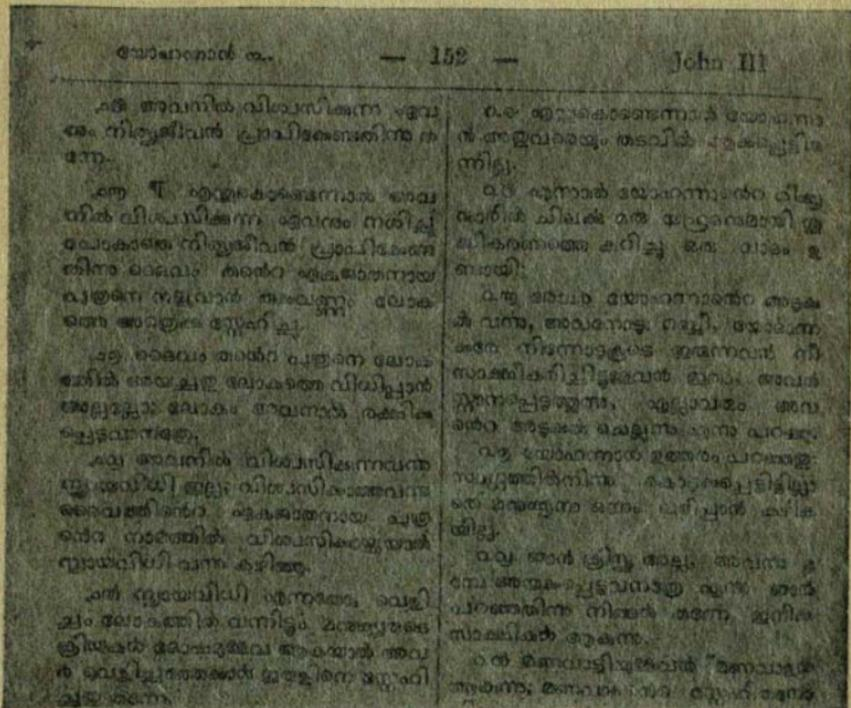 യോഹന്നാൻ ൩. — 152 — John III
൧൫ അവനിൽ വിശ്വസിക്കുന്ന ഏവ
നും നിത്യജീവൻ പ്രാപിക്കേണ്ടതിന്നു ത
ന്നേ.
൧൬ ¶ എന്തുകൊണ്ടെന്നാൽ അവ
നിൽ വിശ്വസിക്കുന്ന ഏവനും നശിച്ചു
പോകാതെ നിത്യജീവൻ പ്രാപിക്കേണ്ട
തിന്നു ദൈവം തൻെറ ഏകജാതനായ
പുത്രനെ നല്കുവാൻ തക്കവണ്ണം ലോക
ത്തെ അത്രെക്കു സ്നേഹിച്ചു.
൧൭ ദൈവം തൻെറ പുത്രനെ ലോക
ത്തിൽ അയച്ചതു ലോകത്തെ വിധിപ്പാൻ
അല്ലല്ലോ; ലോകം അവനാൽ രക്ഷിക്ക
പ്പെടുവാനത്രേ.
൧൮ അവനിൽ വിശ്വസിക്കുന്നവന്നു
ന്യായവിധി ഇല്ല; വിശ്വസിക്കാത്തവന്നു
ദൈവത്തിൻെറ ഏകജാതനായ പുത്ര
ൻെറ നാമത്തിൽ വിശ്വസിക്കായ്കയാൽ
ന്യായവിധി വന്നു കഴിഞ്ഞു.
൧൯ ന്യായവിധി എന്നതോ, വെളി
ച്ചം ലോകത്തിൽ വന്നിട്ടും മനുഷ്യരുടെ
ക്രിയകൾ ദോഷമുള്ളവ ആകയാൽ അവ
ർ വെളിച്ചത്തെക്കാൾ ഇരുളിനെ സ്നേഹി
ച്ചതു തന്നേ.
൨൪ എന്തുകൊണ്ടെന്നാൽ യോഹന്നാ
ൻ അതുവരെയും തടവിൽ ആക്കപ്പെട്ടിരു
ന്നില്ല.
൨൫ എന്നാൽ യോഹന്നാൻെറ ശിഷ്യ
ന്മാരിൽ ചിലർക്കു ഒരു യഹൂദനുമായി ശു
ദ്ധീകരണത്തെ കുറിച്ചു ഒരു വാദം ഉ
ണ്ടായി:
൨൬ അവർ യോഹന്നാൻെറ അടുക്ക
ൽ വന്നു, അവനോടു: റബ്ബീ, യോർദാന്ന
ക്കരേ നിന്നോടുകൂടെ ഇരുന്നവൻ നീ
സാക്ഷീകരിച്ചിട്ടുള്ളവൻ ഇതാ, അവൻ
സ്നാനപ്പെടുത്തുന്നു, എല്ലാവരും അവ
ൻെറ അടുക്കൽ ചെല്ലുന്നു എന്നു പറഞ്ഞു.
൨൭ യോഹന്നാൻ ഉത്തരം പറഞ്ഞതു:
സ്വർഗ്ഗത്തിൽനിന്നു കൊടുക്കപ്പെട്ടിട്ടില്ലാ
തെ മനുഷ്യന്നു ഒന്നും ലഭിപ്പാൻ കഴിക
യില്ല.
൨൮ ഞാൻ ക്രിസ്തു അല്ല; അവന്നു മു
മ്പേ അയക്കപ്പെട്ടവനത്രേ എന്നു ഞാൻ
പറഞ്ഞതിന്നു നിങ്ങൾ തന്നേ ഇനിക്കു
സാക്ഷികൾ ആകുന്നു.
൨൯ മണവാട്ടിയുള്ളവൻ മണവാളൻ
ആകുന്നു;